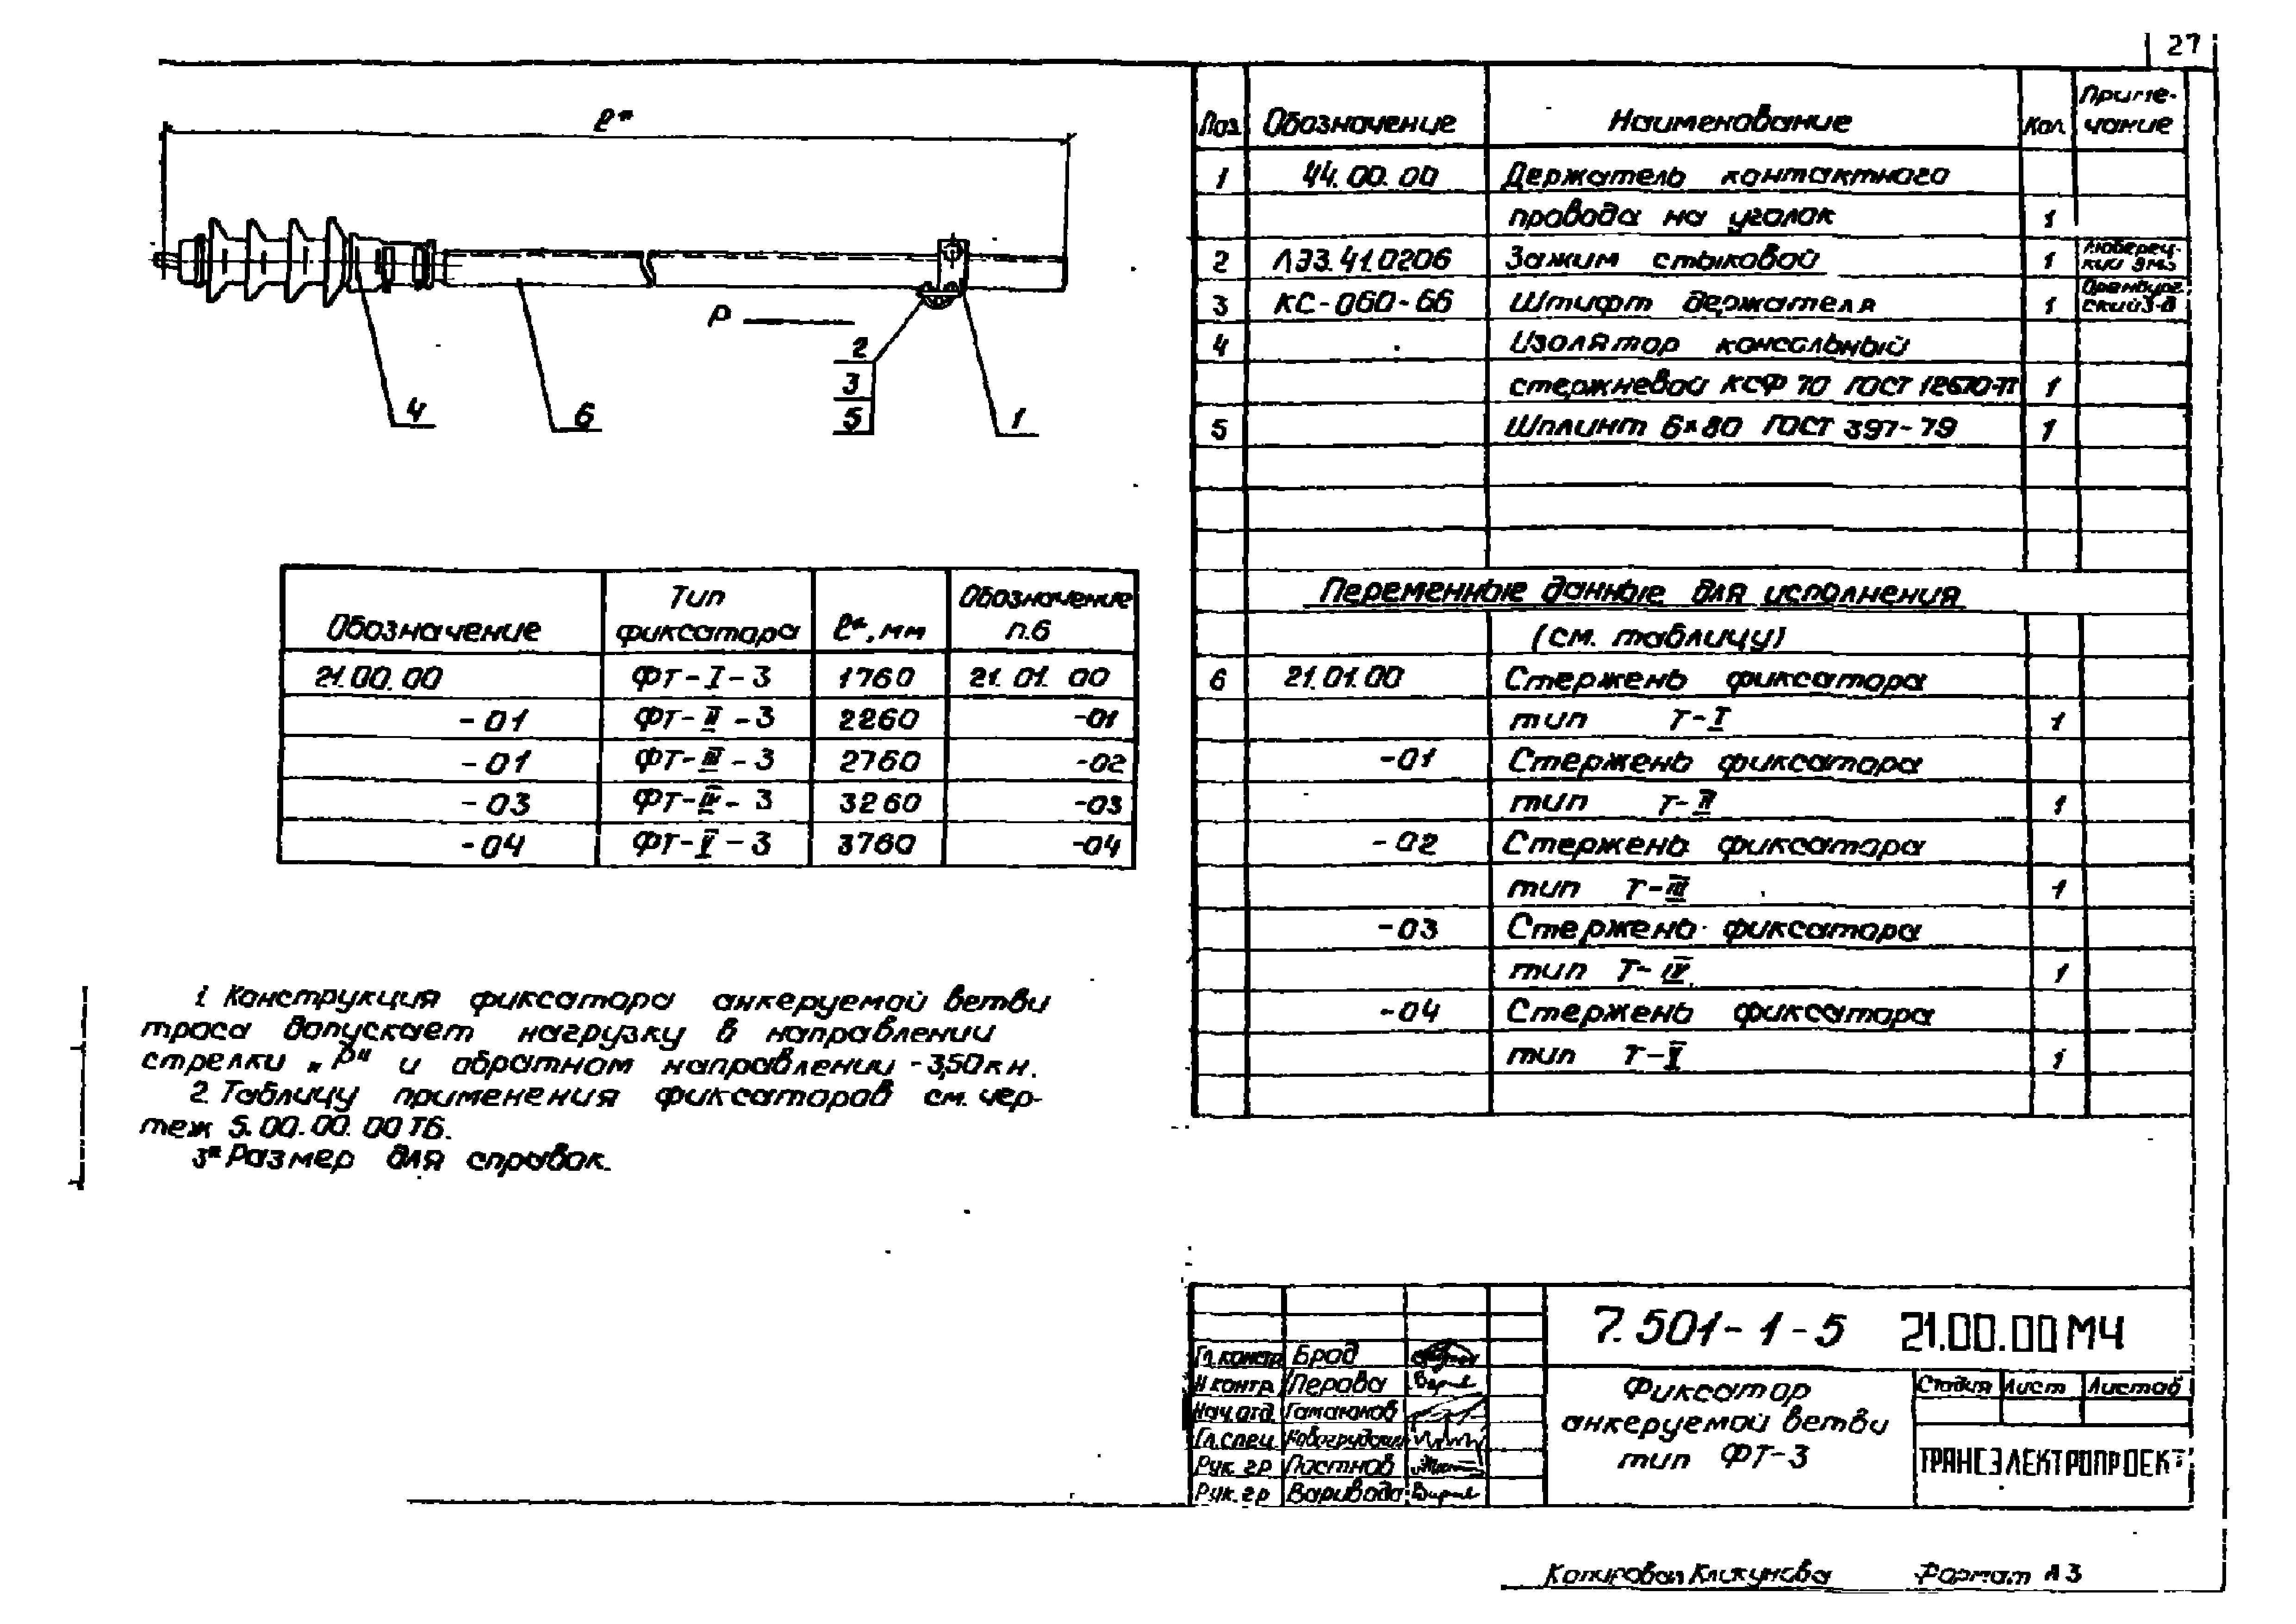 27
ℓ*
P
2
3
5
4
6
1
Обозначение Тип фиксатора ℓ*, мм Обозначение п.6
21.00.00 ФТ-I-3 1760 21.01.00
-01 ФТ-II-3 2260 -01
-01 ФТ-III-3 2760 -02
-03 ФТ-IV-3 3260 -03
-04 ФТ-V-3 3760 -04
1 Конструкция фиксатора анкеруемой ветви
троса допускает нагрузку в направлении
стрелки „P" и обратном направлении - 3,50кн.
2. Таблицу применения фиксаторов см. чер-
теж 5.00.00.00 ТБ.
3* Размер для справок.
Поз Обозначение Наименование Кол Приме-
чание
1 44.00.00 Держатель контактного
провода на уголок 1
2 ЛЭЗ.41.0206 Зажим стыковой 1 Люберец-
кий ЭМЗ
3 КС-060-66 Штифт держателя 1 Оренбург-
ский з-д
4 Изолятор консольный
стержневой КСФ 70 ГОСТ 12670-77 1
5 Шплинт 6×80 ГОСТ 397-79 1
Переменные данные для исполнения
(см. таблицу)
6 21.01.00 Стержень фиксатора
тип Т-I 1
-01 Стержень фиксатора
тип Т-II 1
-02 Стержень фиксатора
тип Т-III 1
-03 Стержень фиксатора
тип Т-IV 1
-04 Стержень фиксатора
тип Т-V 1
7.501-1-5 21.00.00 МЧ
Гл.констр Брод
Н.контр Перова
Нач.отд Гамаюнов
Гл.спец
Рук. гр Постнов
Рук. гр Варивода
Фиксатор
анкеруемой ветви
тип ФТ-3
Стадия Лист Листов
ТРАНСЭЛЕКТРОПРОЕКТ
Копировал Кликунова Формат А3